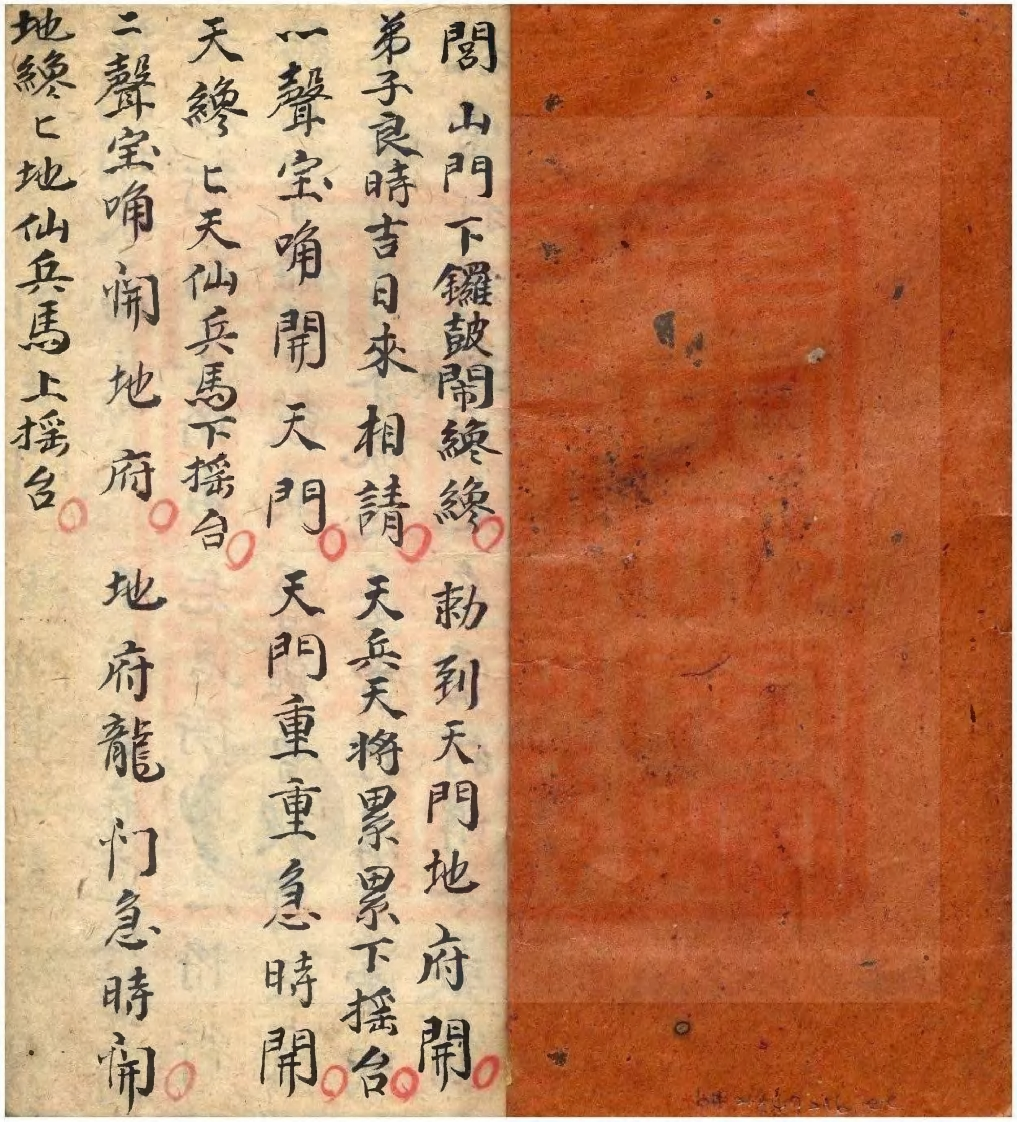 閭山門下鑼鼓鬧纔纔 勅到天門地府開
弟子良時吉日來相請 天兵天將累累下搖台
一聲宝角開天門 天門重重急時開
天纔匕天仙兵馬下搖台
二聲宝角開地府 地府龍門急時開
地纔匕地仙兵馬上搖台